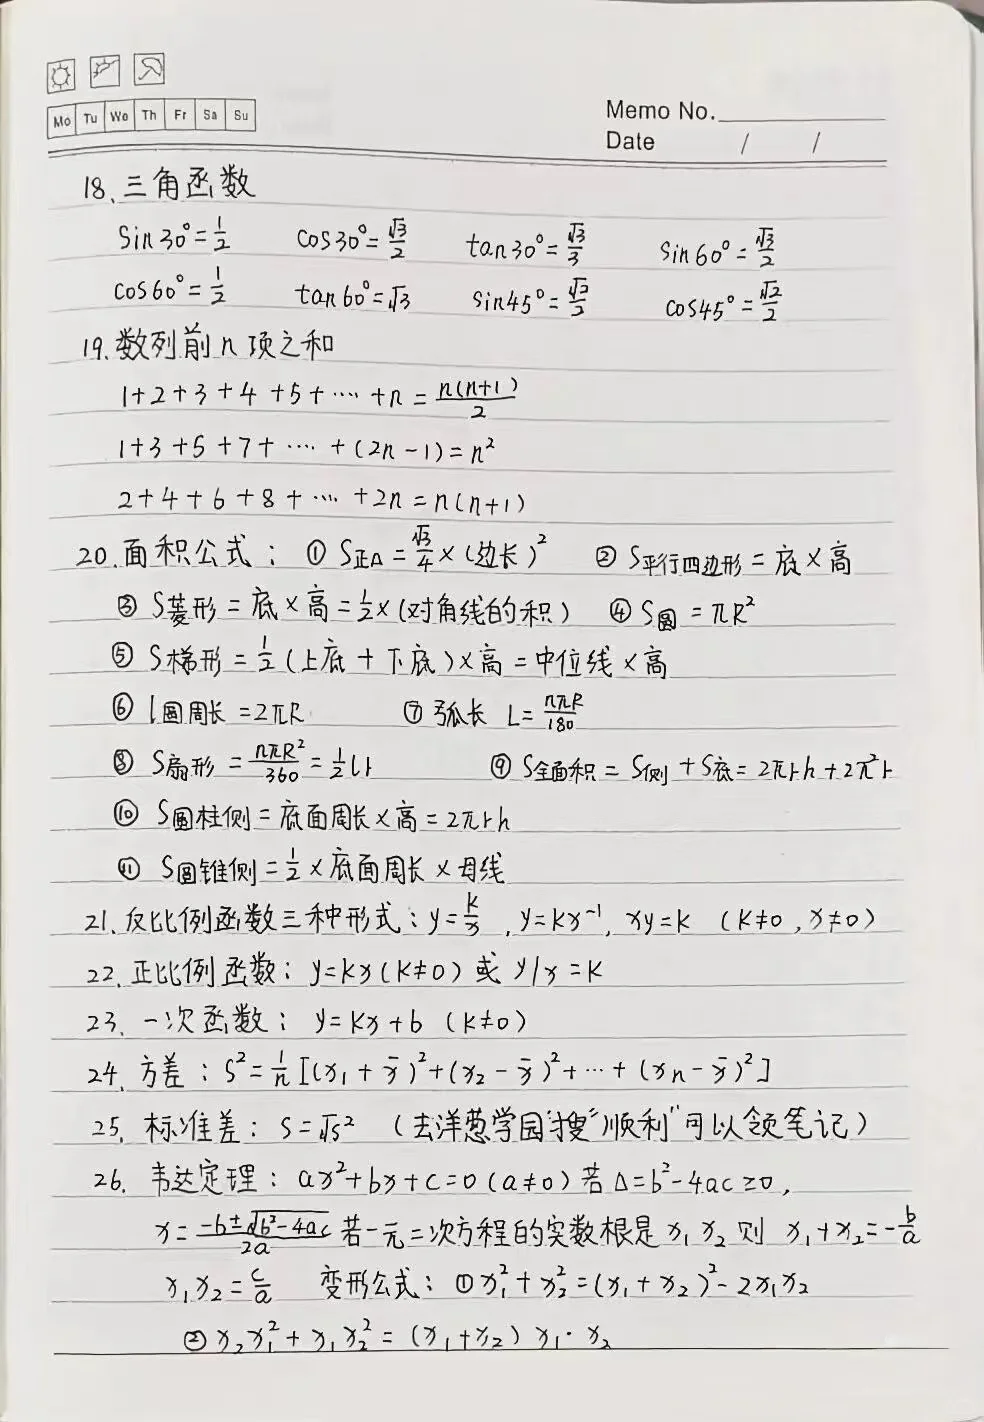 Mo Tu We Th Fr Sa Su
Memo No.
Date / /
18.三角函数
sin30°=1/2 cos30°=√3/2 tan30°=√3/3 sin60°=√3/2
cos60°=1/2 tan60°=√3 sin45°=√2/2 cos45°=√2/2
19.数列前n项之和
1+2+3+4+5+····+n=n(n+1)/2
1+3+5+7+····+(2n-1)=n²
2+4+6+8+····+2n=n(n+1)
20.面积公式: ① S正Δ=√3/4×(边长)² ② S平行四边形=底×高
③ S菱形=底×高=1/2×(对角线的积) ④ S圆=πR²
⑤ S梯形=1/2(上底+下底)×高=中位线×高
⑥ l圆周长=2πR ⑦ 弧长 L=nπR/180
⑧ S扇形=nπR²/360=1/2lr ⑨ S全面积=S侧+S底=2πrh+2π²r
⑩ S圆柱侧=底面周长×高=2πrh
⑪ S圆锥侧=1/2×底面周长×母线
21.反比例函数三种形式:y=k/x,y=kx⁻¹,xy=k (k≠0,x≠0)
22.正比例函数:y=kx(k≠0)或 y/x=k
23.一次函数:y=kx+b (k≠0)
24.方差:S²=1/n[(x₁+x̄)²+(x₂-x̄)²+···+(xn-x̄)²]
25.标准差:S=√S² (去洋葱学园搜“顺利”可以领笔记)
26.韦达定理:ax²+bx+c=0(a≠0)若Δ=b²-4ac≥0,
x=-b±√b²-4ac/2a 若一元二次方程的实数根是x₁x₂则 x₁+x₂=-b/a
x₁x₂=c/a 变形公式:①x₁²+x₂²=(x₁+x₂)²-2x₁x₂
②x₂x₁²+x₁x₂²=(x₁+x₂)x₁·x₂